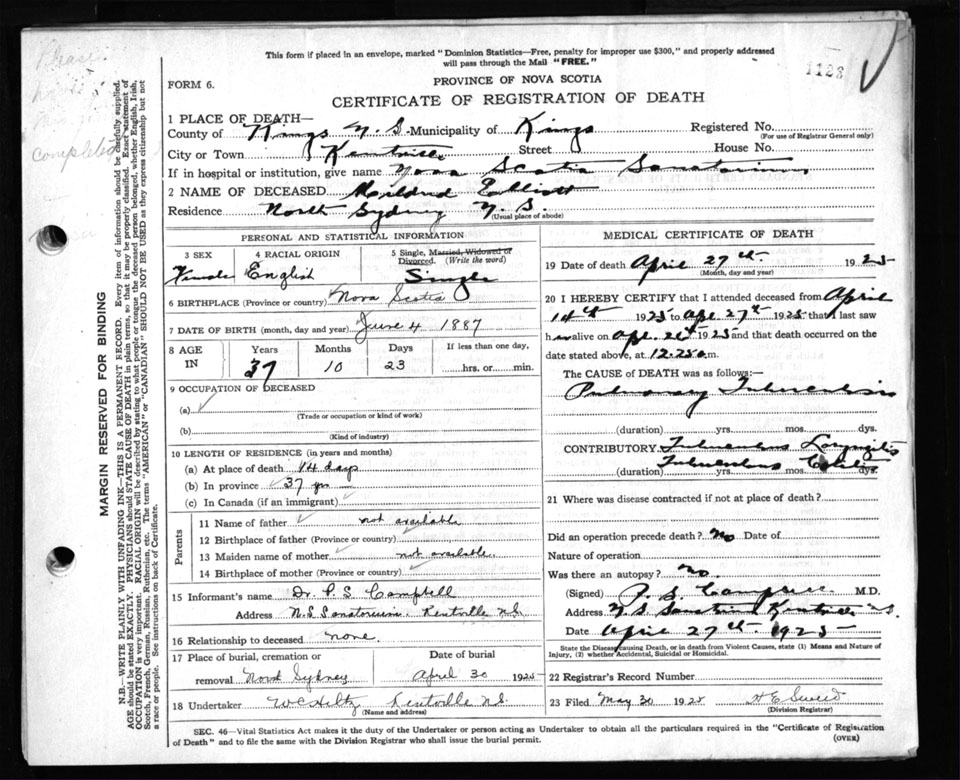 This form if placed in an envelope, marked "Dominion Statistics—Free, penalty for improper use $300," and properly addressed
will pass through the Mail "FREE."
1123
FORM 6.
PROVINCE OF NOVA SCOTIA
CERTIFICATE OF REGISTRATION OF DEATH
1 PLACE OF DEATH—
County of Kings N.S. Municipality of Kings Registered No.
(For use of Registrar General only)
City or Town Kentville Street House No.
If in hospital or institution, give name Nova Scotia Sanatorium
2 NAME OF DECEASED Mildred Elliott
Residence North Sydney N.S.
(Usual place of abode)
PERSONAL AND STATISTICAL INFORMATION
3 SEX 4 RACIAL ORIGIN 5 Single, Married, Widowed or
Divorced. (Write the word)
Female English Single
6 BIRTHPLACE (Province or country) Nova Scotia
7 DATE OF BIRTH (month, day and year) June 4 1887
8 AGE IN Years Months Days If less than one day,
37 10 23 hrs. or min.
9 OCCUPATION OF DECEASED
(a)
(Trade or occupation or kind of work)
(b)
(Kind of industry)
10 LENGTH OF RESIDENCE (in years and months)
(a) At place of death 14 days
(b) In province 37 yrs
(c) In Canada (if an immigrant)
Parents
11 Name of father not available
12 Birthplace of father (Province or country)
13 Maiden name of mother not available.
14 Birthplace of mother (Province or country)
15 Informant's name Dr. P.S. Campbell
Address N.S. Sanatorium. Kentville N.S.
16 Relationship to deceased none.
17 Place of burial, cremation or Date of burial
removal North Sydney April 30 1925
18 Undertaker Kentville N.S.
(Name and address)
MEDICAL CERTIFICATE OF DEATH
19 Date of death April 27th 1925
(Month, day and year)
20 I HEREBY CERTIFY that I attended deceased from April
14th 1925 to Apr. 27th 1925 that I last saw
h alive on Apr. 1925 and that death occurred on the
date stated above, at 12.25 a.m.
The CAUSE of DEATH was as follows:—
Pulmonary Tuberculosis
(duration) yrs. mos. dys.
CONTRIBUTORY Tuberculous Laryngitis
Tuberculous
(duration) yrs. mos. dys.
21 Where was disease contracted if not at place of death?
Did an operation precede death? No Date of
Nature of operation
Was there an autopsy? No.
(Signed) P.S. Campbell M.D.
Address N.S. Sanatorium Kentville N.S.
Date April 27th 1925
State the Disease causing Death, or in death from Violent Causes, state (1) Means and Nature of
Injury, (2) whether Accidental, Suicidal or Homicidal.
22 Registrar's Record Number
23 Filed May 30 1925
(Division Registrar)
SEC. 46—Vital Statistics Act makes it the duty of the Undertaker or person acting as Undertaker to obtain all the particulars required in the "Certificate of Registration
of Death" and to file the same with the Division Registrar who shall issue the burial permit. (OVER)
MARGIN RESERVED FOR BINDING
N.B.—WRITE PLAINLY WITH UNFADING INK—THIS IS A PERMANENT RECORD. Every item of information should be carefully supplied.
AGE should be stated EXACTLY. PHYSICIANS should STATE CAUSE OF DEATH in plain terms, so that it may be properly classified. Exact statement of
OCCUPATION is very important. RACIAL ORIGIN will be described by stating to what people or tongue the deceased person belonged, whether English, Irish,
Scotch, French, German, Russian, Ruthenian, etc. The terms "AMERICAN" or "CANADIAN" SHOULD NOT BE USED as they express citizenship but not
a race or people. See instructions on back of Certificate.
Please
completed